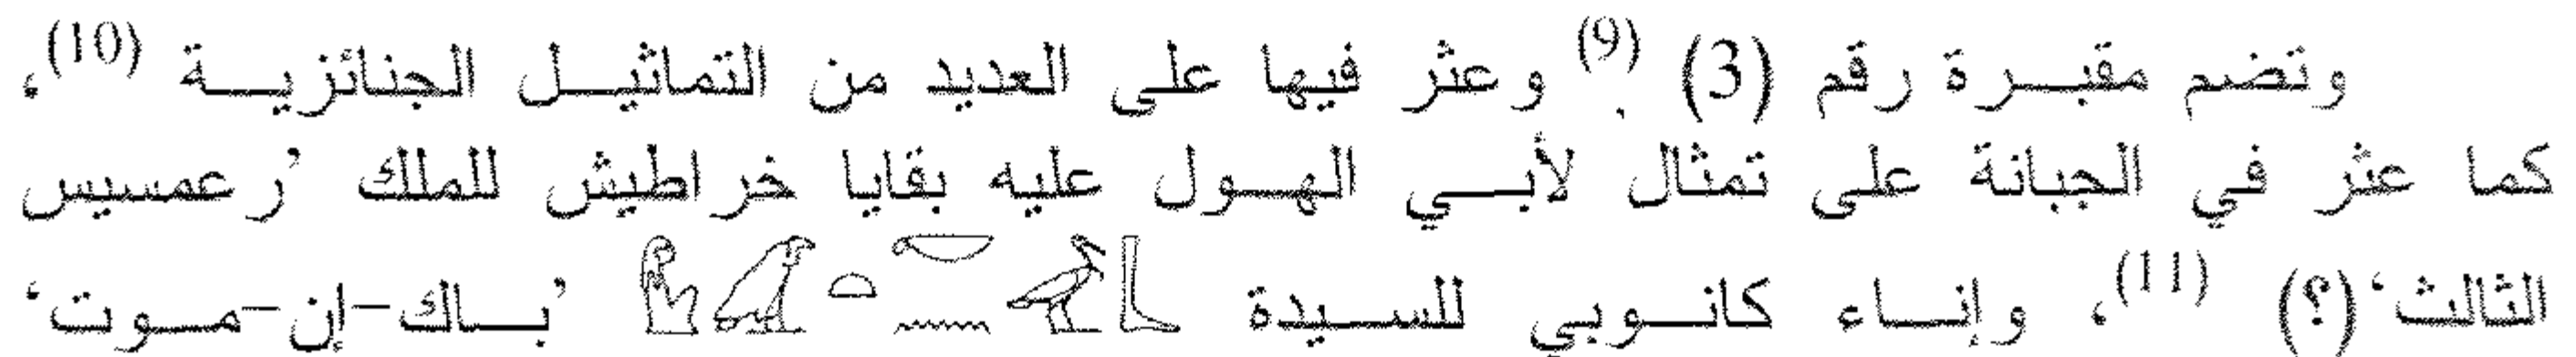 وتضم مقبرة رقم (3) (9). وعثر فيها على العديد من التماثيل الجنائزية (10)،
كما عثر في الجبانة على تمثال لأبي الهول عليه بقايا خراطيش للملك ’رعمسيس
الثالث‘(؟) (11)، وإناء كانوبي للسيدة ’باك-إن-موت‘